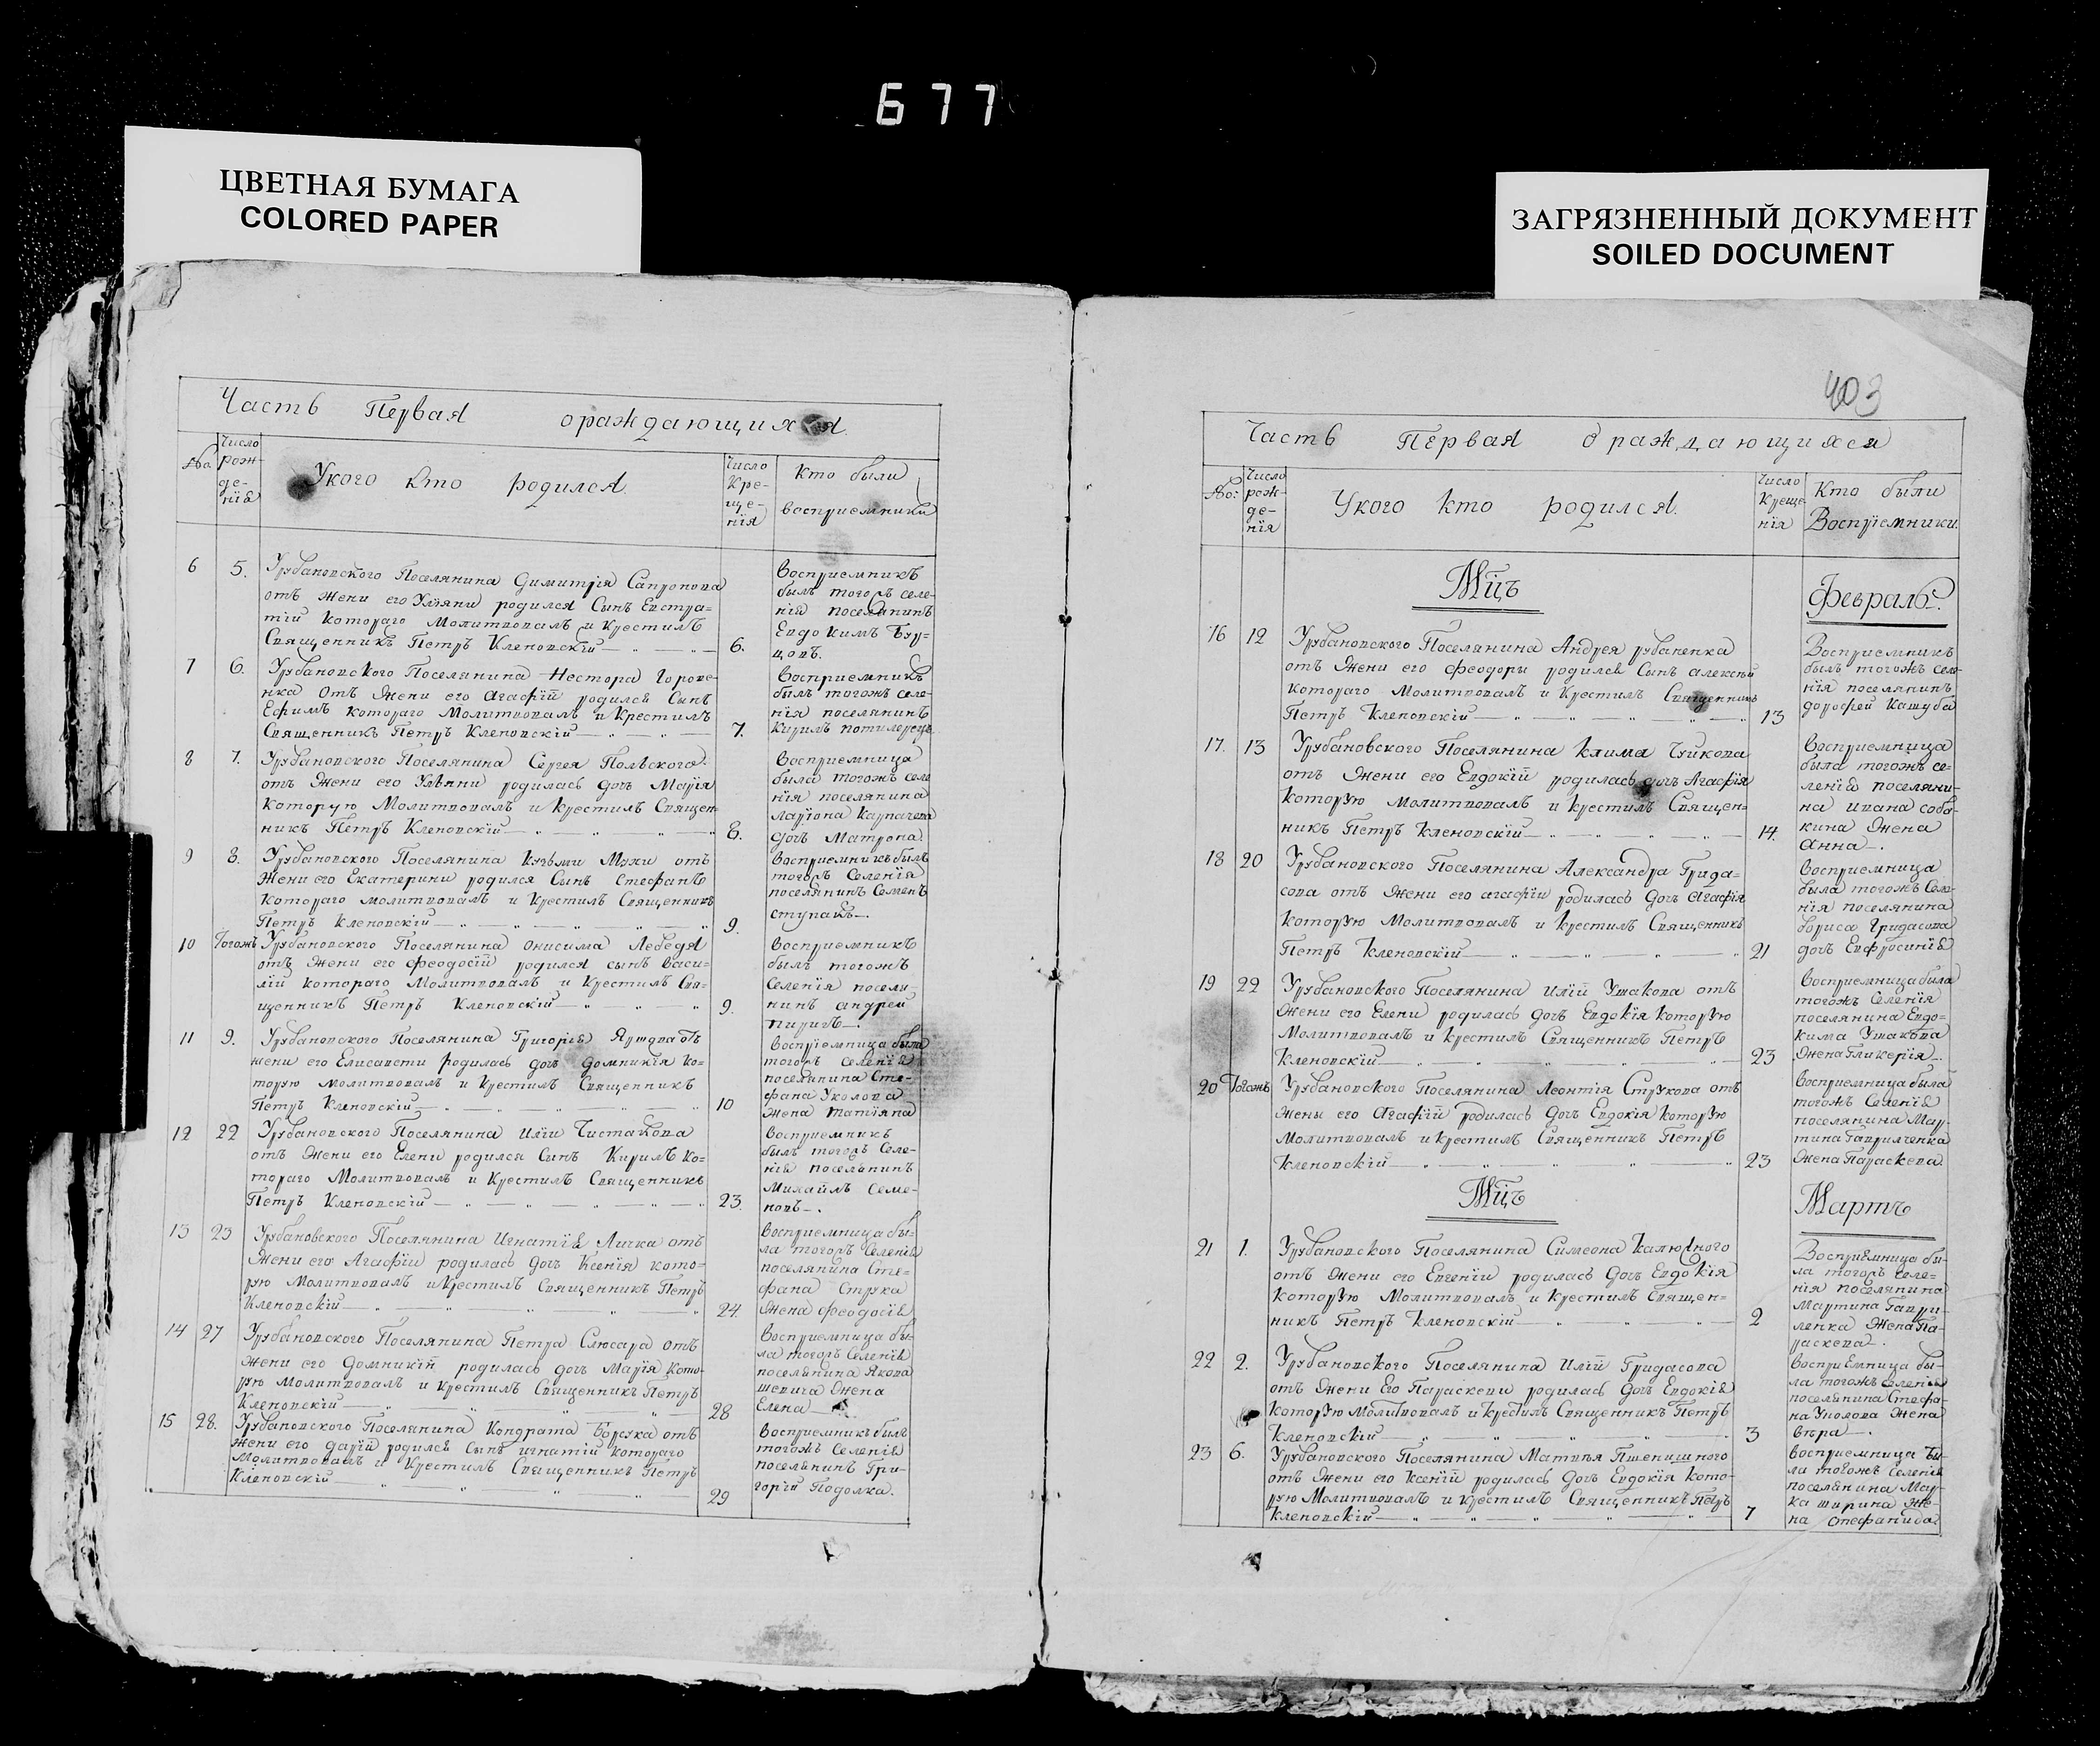 677
ЦВЕТНАЯ БУМАГА
COLORED PAPER
ЗАГРЯЗНЕННЫЙ ДОКУМЕНТ
SOILED DOCUMENT
Часть Первая ораждающихся.
No
Число
рож-
де-
нія
Укого кто родился.
Число
Кре-
ще-
нія
Кто были
восприемники
6 5. Урубановского Поселянина Димитрія Сапронова
отъ жени его Уліяни родился Сынъ Евстра=
тій котораго Молитвовалъ и Крестилъ
Священникъ Петръ Кленовскій 6.
Восприемникъ
былъ тогожъ селе-
нія поселянинъ
Евдокимъ Бур=
цовъ.
7 6. Урубановского Поселянина Нестора Горове-
нка Отъ Жени его Агафій родился Сынъ
Ефимъ котораго Молитвовалъ и Крестилъ
Священникъ Петръ Кленовскій 7.
Восприемникъ
былъ тогожъ селе-
нія поселянинъ
Кирилъ
8 7. Урубановского Поселянина Сергея Польского
отъ Жени его Уліяни родилась дочь Марія
которую Молитвовалъ и крестилъ Священ-
никъ Петръ Кленовскій 8.
Восприемница
была тогожъ селе
нія поселянина
Ларіона Карпачева
дочь Матрона
9 8. Урубановского Поселянина Кузьми Мухи отъ
Жени его Екатерини родился Сынъ Стефанъ
котораго молитвовалъ и Крестилъ Священникъ
Петръ Кленовскій 9.
Восприемникъ былъ
тогожъ Селенія
поселянинъ Семенъ
ступакъ.
10 Тогожъ Урубановского Поселянина Онисима Лебедя
отъ Жени его Феодосій родился сынъ Васи=
лій котораго Молитвовалъ и Крестилъ Свя=
щенникъ Петръ Кленовскій 9.
Восприемникъ
былъ тогожъ
Селенія поселя-
нинъ андрей
пиригъ.
11 9. Урубановского Поселянина Григорія отъ
жени его Елисавети родилась дочь домникія ко=
торую молитвовалъ и Крестилъ Священникъ
Петръ Кленовскій 10
Восприемница была
тогожъ Селенія
поселянина Сте-
фана Уколова
Жена татіяна
12 22 Урубановского Поселянина Иліи Чистакова
отъ Жени его Елени родился Сынъ Кирилъ ко=
тораго Молитвовалъ и Крестилъ Священникъ
Петръ Кленовскій 23.
Восприемникъ
былъ тогожъ Селе-
нія поселянинъ
Михаилъ Семе-
новъ.
13 23 Урубановского Поселянина Игнатія Личка отъ
Жени его Агафіи родилась дочь Ксенія кото=
рую Молитвовалъ и Крестилъ Священникъ Петръ
Кленовскій 24.
Восприемница бы=
ла тогожъ Селенія
поселянина Сте=
фана Струка
Жена феодосія
14 27 Урубановского Поселянина Петра Слюсара отъ
Жени его домникій родилась дочь Марія Кото-
рую Молитвовалъ и Крестилъ Священникъ Петръ
Кленовскій 28
Восприемница бы-
ла тогожъ Селенія
поселянина Якова
шевича Жена
Елена
15 28. Урубановского Поселянина Кондрата Борзука отъ
Жени его дарій родился Сынъ игнатій котораго
Молитвовалъ и Крестилъ Священникъ Петръ
Кленовскій 29
Восприемникъ былъ
тогожъ Селенія
поселянинъ Гри-
горій Подолка.
403
Часть Первая ораждающихся
No:
Число
рож-
де-
нія
Укого кто родился.
Число
Креще-
нія
Кто были
Воспріемники.
Мцъ Февраль.
16 12 Урубановского Поселянина Андрея рубаненка
отъ Жени его феодоры родился Сынъ алексий
котораго Молитвовалъ и Крестилъ Священникъ
Петръ Кленовскій 13
Восприемникъ
былъ тогожъ Селе-
нія поселянинъ
дорофей Кашуба
17. 13 Урубановского Поселянина клима Чуйкова
отъ Жени его Евдокій родилась дочь Агафія
которую молитвовалъ и крестилъ Священ-
никъ Петръ Кленовскій 14.
Восприемница
была тогожъ се-
ленія поселяни-
на ивана соба-
кина Жена
Анна.
18 20 Урубановского Поселянина Александра Грида=
сова отъ Жени его агафіи родилась дочь Агафія
которую Молитвовалъ и крестилъ Священникъ
Петръ Кленовскій 21
восприемница
была тогожъ Селе-
нія поселянина
бориса Гридасова
дочь Евфросинія
19 22 Урубановского Поселянина Иліи Ушакова отъ
Жени его Елени родилась дочь Евдокія которую
Молитвовалъ и крестилъ Священникъ Петръ
Кленовскій 23
восприемница была
тогожъ Селенія
поселянина Евдо-
кима Ушакова
Жена Гликерія.
20 Тогожъ Урубановского Поселянина Леонтія Струкова отъ
Жены его Агафій родилась дочь Евдокія которую
молитвовалъ и крестилъ Священникъ Петръ
Кленовскій 23
восприемница была
тогожъ Селенія
поселянина Мар-
тина Гаврилченка
Жена Параскева.
Мцъ Мартъ
21 1. Урубановского Поселянина Симеона Калюжного
отъ Жени его Евгеніи родилась дочь Евдокія
которую Молитвовалъ и крестилъ Священ-
никъ Петръ Кленовскій 2
Восприемница бы-
ла тогожъ селе=
нія поселянина
Мартина Гаври-
ленка Жена Па-
раскева.
22 2. Урубановского Поселянина Иліи Гридасова
отъ Жени Его Параскеви родилась дочь Евдокія
которую Молитвовалъ и крестилъ Священникъ Петръ
Кленовскій 3
восприемница бы-
ла тогожъ Селенія
поселянина Стефа-
на Уколова Жена
вѣра.
23 6. Урубановского Поселянина Матвѣя Пшенишного
отъ Жени его Ксеній родилась дочь Евдокія кото-
рую Молитвовалъ и крестилъ Священникъ Петръ
Кленовскій 7
восприемница бы-
ла тогожъ Селенія
поселянина Мар-
ка ширина Же-
на стефанида